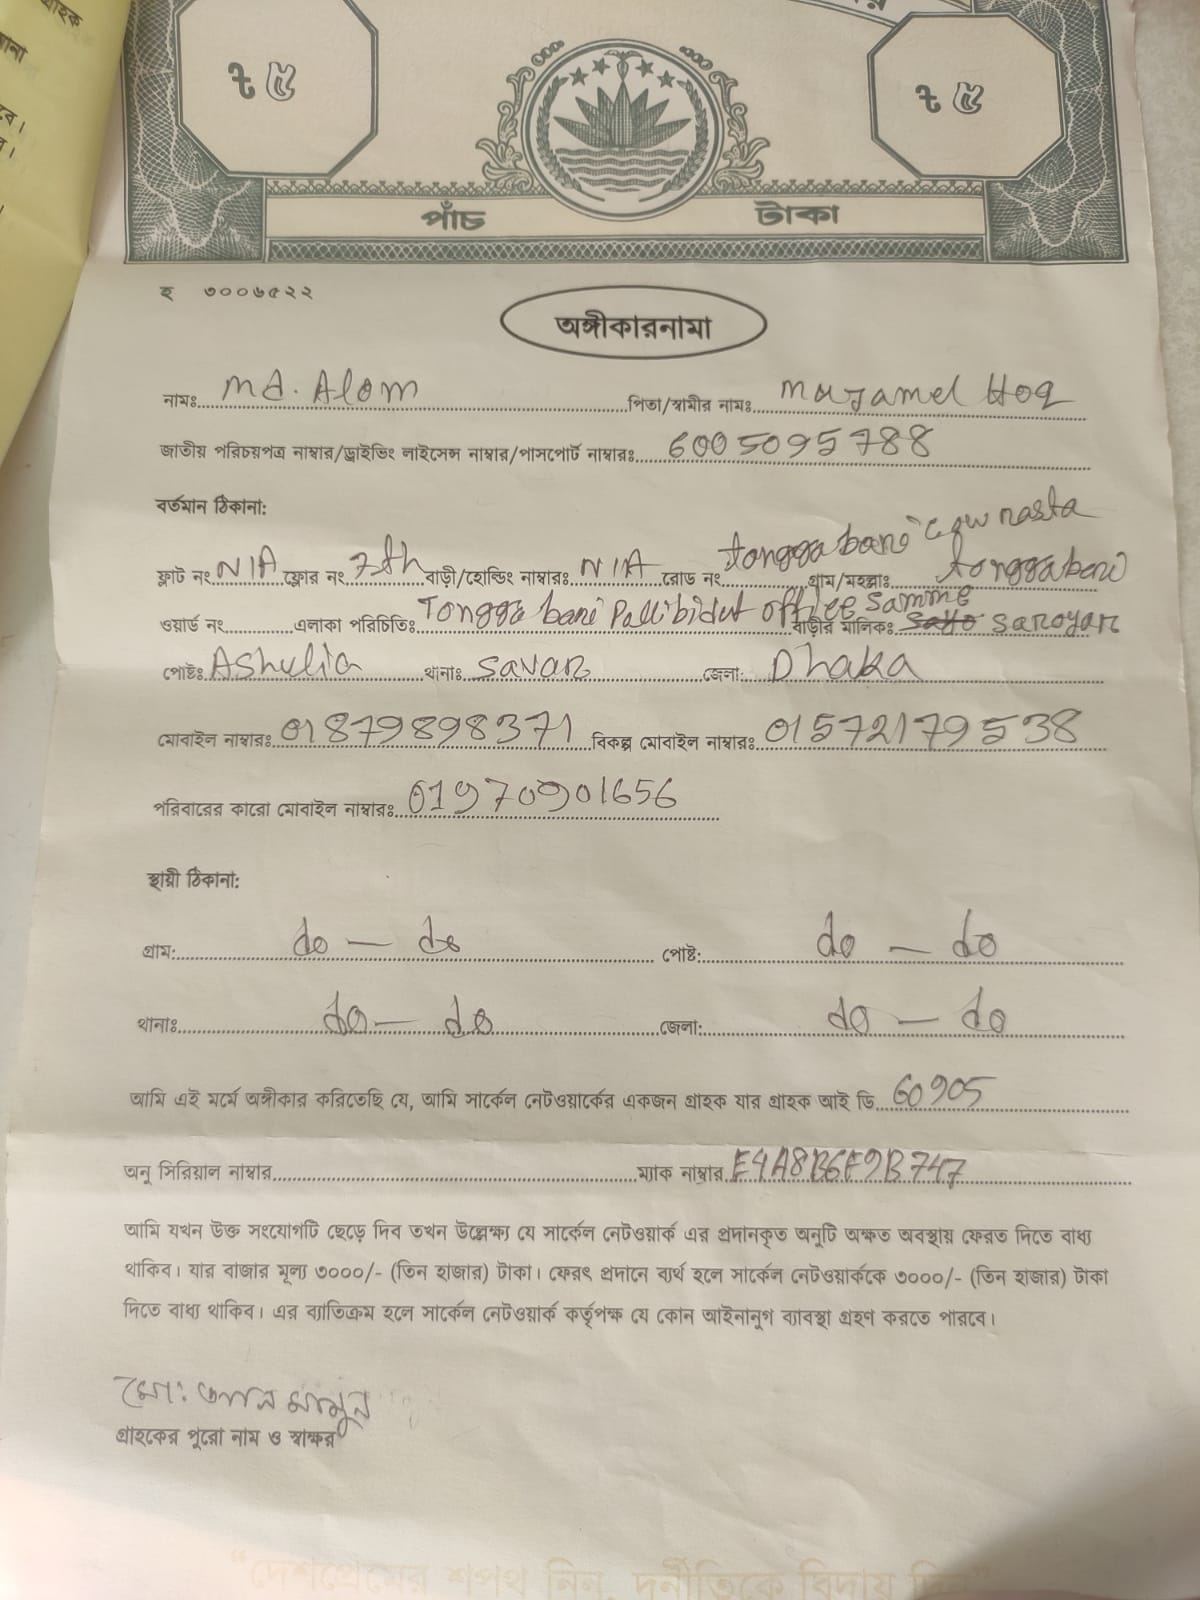 ৳ ৫ ৳ ৫
পাঁচ টাকা
হ ৩০০৬৫২২
অঙ্গীকারনামা
নামঃ Md. Alom পিতা/স্বামীর নামঃ Mojamel Hoq
জাতীয় পরিচয়পত্র নাম্বার/ড্রাইভিং লাইসেন্স নাম্বার/পাসপোর্ট নাম্বারঃ 6005095788
বর্তমান ঠিকানা:
ফ্লাট নং N/A ফ্লোর নং 7th বাড়ী/হোল্ডিং নাম্বারঃ N/A রোড নং tongga bari গ্রাম/মহল্লাঃ tonggabari
ওয়ার্ড নং এলাকা পরিচিতিঃ Tongga bari Pallibidut office samme বাড়ীর মালিকঃ saroyar
পোষ্টঃ Ashulia থানাঃ savar জেলা: Dhaka
মোবাইল নাম্বারঃ 01879898371 বিকল্প মোবাইল নাম্বারঃ 01572179538
পরিবারের কারো মোবাইল নাম্বারঃ 01970901656
স্থায়ী ঠিকানা:
গ্রাম: do — do পোষ্ট: do — do
থানাঃ do — do জেলা: do — do
আমি এই মর্মে অঙ্গীকার করিতেছি যে, আমি সার্কেল নেটওয়ার্কের একজন গ্রাহক যার গ্রাহক আই ডি 60905
অনু সিরিয়াল নাম্বার ম্যাক নাম্বার E4A8B6F9B747
আমি যখন উক্ত সংযোগটি ছেড়ে দিব তখন উল্লেক্ষ্য যে সার্কেল নেটওয়ার্ক এর প্রদানকৃত অনুটি অক্ষত অবস্থায় ফেরত দিতে বাধ্য
থাকিব। যার বাজার মূল্য ৩০০০/- (তিন হাজার) টাকা। ফেরৎ প্রদানে ব্যর্থ হলে সার্কেল নেটওয়ার্ককে ৩০০০/- (তিন হাজার) টাকা
দিতে বাধ্য থাকিব। এর ব্যাতিক্রম হলে সার্কেল নেটওয়ার্ক কর্তৃপক্ষ যে কোন আইনানুগ ব্যাবস্থা গ্রহণ করতে পারবে।
মোঃ মামুন
গ্রাহকের পুরো নাম ও স্বাক্ষর
"দেশপ্রেমের শপথ নিন, দুর্নীতিকে বিদায় দিন"